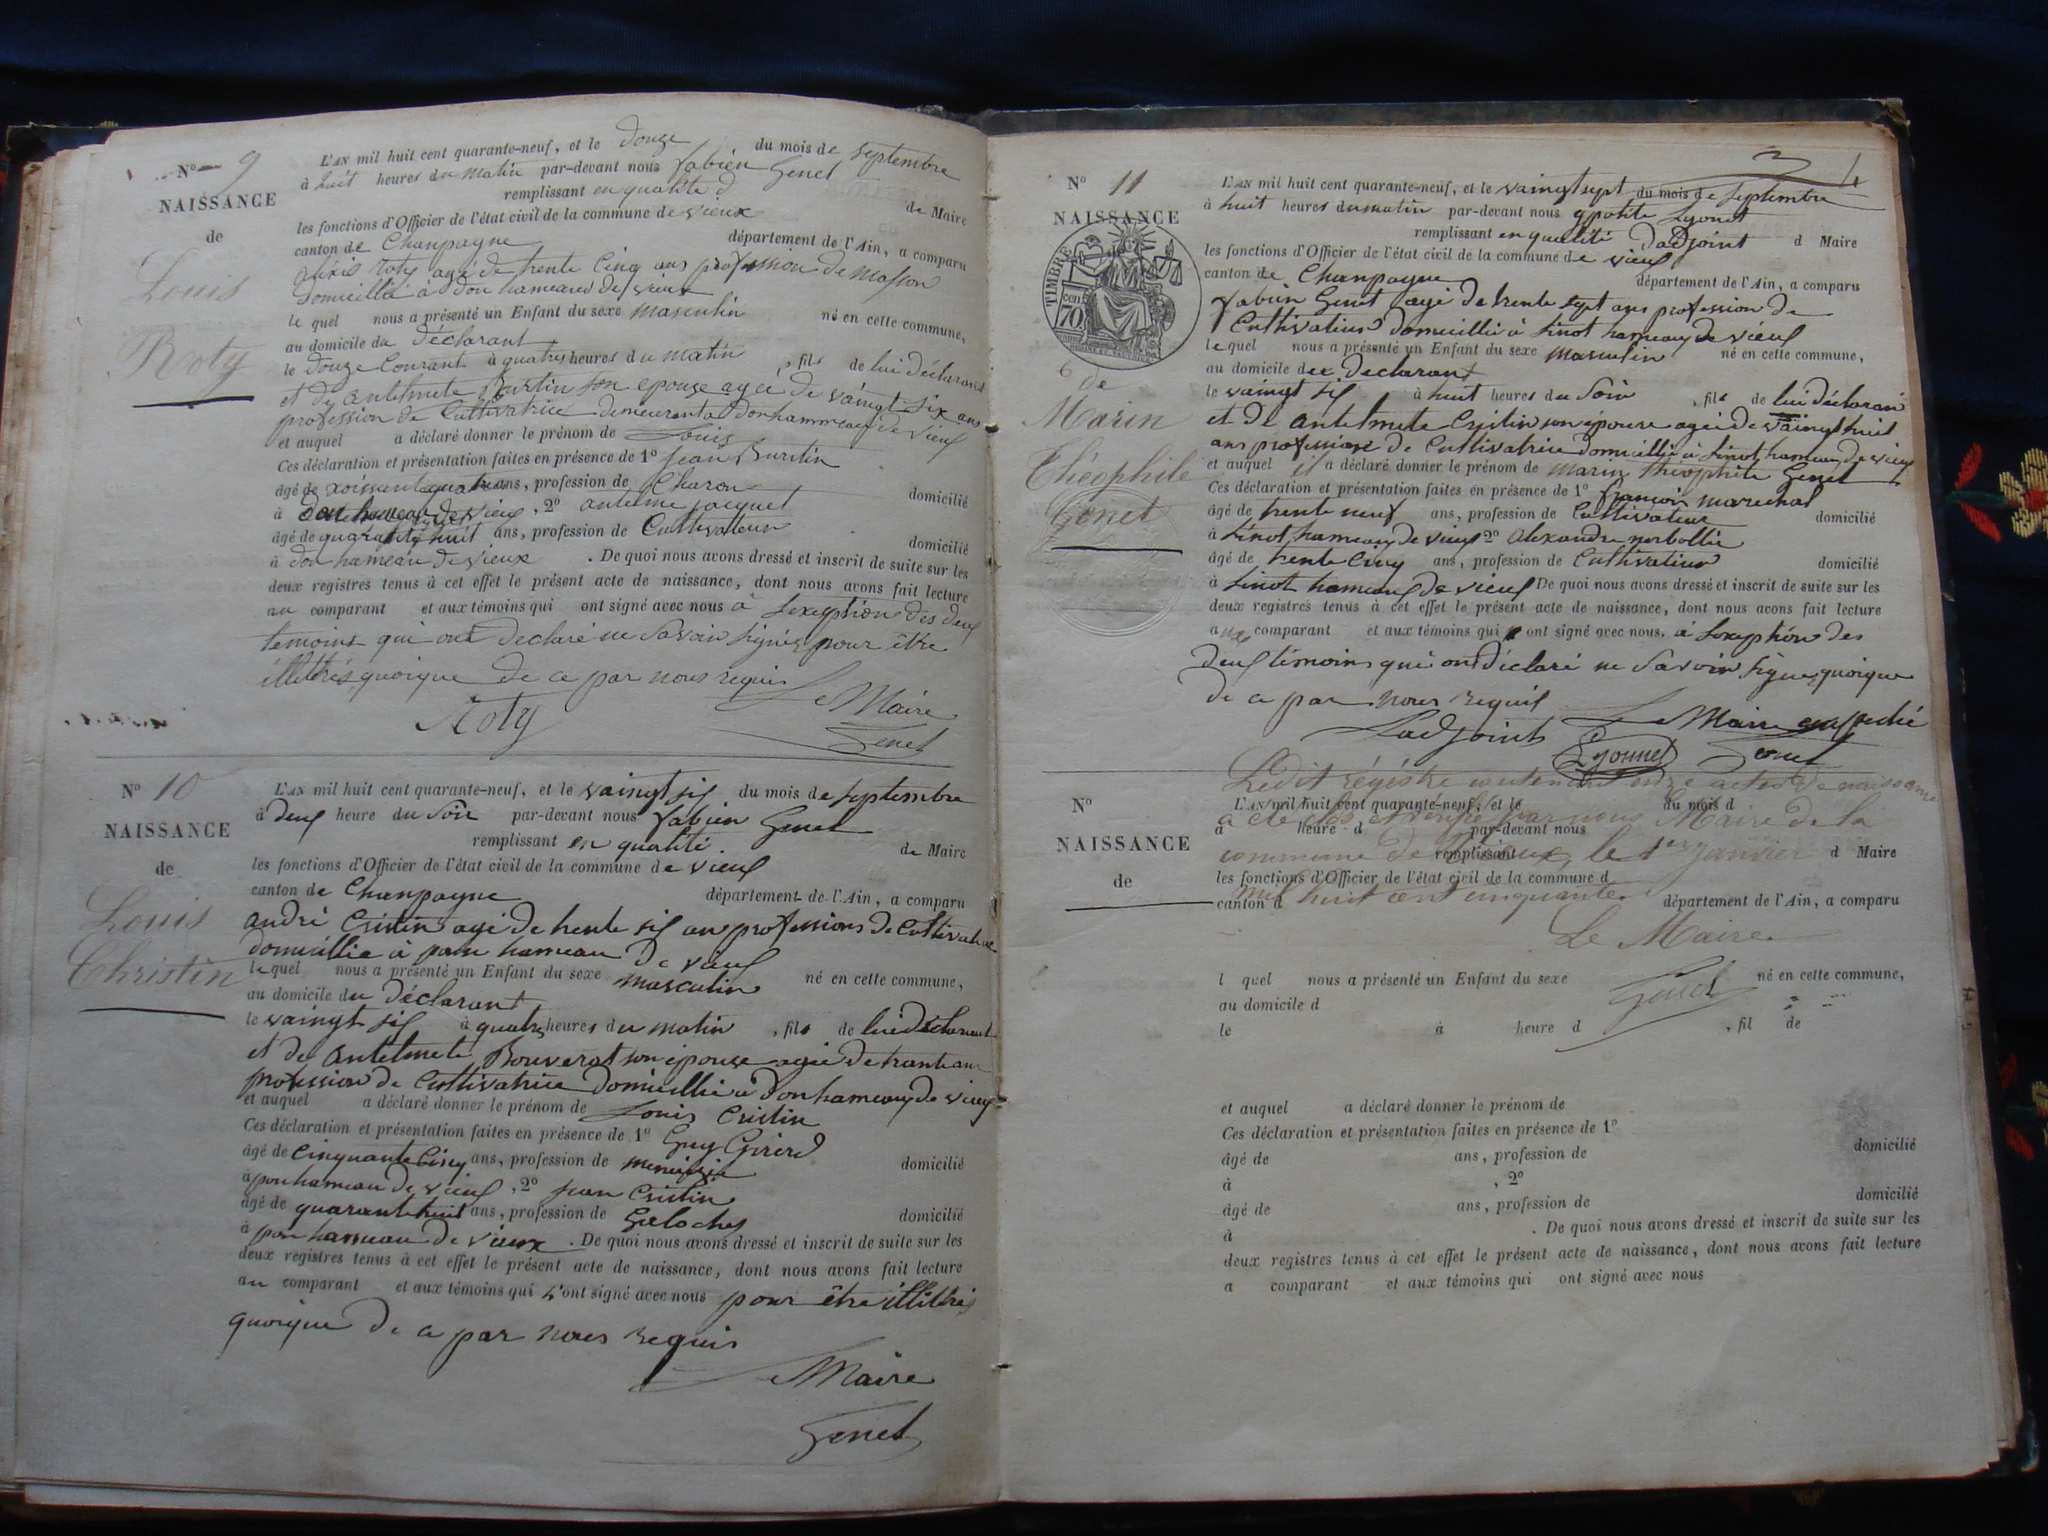 N° 9
NAISSANCE
de
Louis
Roty
L'AN mil huit cent quarante-neuf, et le douze du mois de septembre
à huit heures du matin par-devant nous fabien Genet
remplissant en qualité d de Maire
les fonctions d'Officier de l'état civil de la commune de vieux
canton de Champagne département de l'Ain, a comparu
alixis roty agé de trente cinq ans profession de masson
domicillié à don hameaux de vieux
le quel nous a présenté un Enfant du sexe masculin né en cette commune,
au domicile du déclarant
le douze courant à quatres heures du matin , fils de lui déclarant
et de antelmete Burtin son epouze ageé de vaingt six ans
profession de Cultivatrice demeurant a don hammeau de vieux
et auquel a déclaré donner le prénom de Louis
Ces déclaration et présentation faites en présence de 1° Jean Burtin
âgé de soissant quatre ans, profession de Charon domicilié
à don hameau de vieux , 2° antelme jacquet
âgé de quarante huit ans, profession de Cultivateur domicilié
à don hameau de vieux . De quoi nous avons dressé et inscrit de suite sur les
deux registres tenus à cet effet le présent acte de naissance, dont nous avons fait lecture
au comparant et aux témoins qui ont signé avec nous à lexeption des deux
temoins qui ont declaré ne savoir signer pour être
illettrés quoique de ce par nous requis
Roty Le Maire
Genet
N° 10
NAISSANCE
de
Louis
Christin
L'AN mil huit cent quarante-neuf, et le vaingt six du mois de septembre
à deux heure du soir par-devant nous fabien Genet
remplissant en qualité de Maire
les fonctions d'Officier de l'état civil de la commune de vieux
canton de Champagne département de l'Ain, a comparu
andré Cristin agé de trente six ans professions de Cultivateur
domicillié à pon hameau de vieux
le quel nous a présenté un Enfant du sexe masculin né en cette commune,
au domicile du déclarant
le vaingt six à quatre heures du matin , fils de lui déclarant
et de antelmete Bouverat son épouze agée de trante ans
profession de Cultivatrice domicillié à don hameaux de vieux
et auquel a déclaré donner le prénom de Louis Cristin
Ces déclaration et présentation faites en présence de 1° Guy Girerd
âgé de Cinquante Cinq ans, profession de domicilié
à pon hameau de vieux , 2° jean Cristin
âgé de quarante huit ans, profession de domicilié
à pon hameau de vieux . De quoi nous avons dressé et inscrit de suite sur les
deux registres tenus à cet effet le présent acte de naissance, dont nous avons fait lecture
au comparant et aux témoins qui n'ont signé avec nous pour être illitérés
quoique de ce par nous requis
Maire
Genet
N° 11
NAISSANCE
TIMBRE
70
de
Marin
Théophile
Genet
L'AN mil huit cent quarante-neuf, et le vaingt sept du mois de septembre
à huit heures du matin par-devant nous ypolite Lyonet
remplissant en qualité dadjoint d Maire
les fonctions d'Officier de l'état civil de la commune de vieux
canton de Champagne département de l'Ain, a comparu
fabien Genet agé de trente sept ans profession de
Cultivateur domicillié à Linot hameaux de vieux
le quel nous a présenté un Enfant du sexe masculin né en cette commune,
au domicile de declarant
le vaingt six à huit heures du soir , fils de lui déclarant
et de antelmete Cristin son épouse ageé de vaingt huit
ans profession de Cultivatrice domicillié à Linot hameau de vieux
et auquel il a déclaré donner le prénom de marin théophile Genet
Ces déclaration et présentation faites en présence de 1° françois marechal
âgé de trente neuf ans, profession de Cultivateur domicilié
à Linot hameaux de vieux 2° alexandre norbollie
âgé de trente Cinq ans, profession de Cultivateur domicilié
à Linot hameaux de vieux De quoi nous avons dressé et inscrit de suite sur les
deux registres tenus à cet effet le présent acte de naissance, dont nous avons fait lecture
a comparant et aux témoins qui ont signé avec nous. à lexeption des
deux témoins qui ont déclaré ne savoir signer quoique
de ce par nous requis
Ladjoint Le Maire enpeché
Lyonnet Genet
Ledit régistre contenant onze actes de naissance
N°
NAISSANCE
de
L'AN mil huit cent quarante-neuf, et le du mois d
a été clos et par nous Maire de la
à heure d par-devant nous
commune de Vieux, le 1er janvier
remplissant d Maire
les fonctions d'Officier de l'état civil de la commune d
mil huit cent cinquante.
canton d département de l'Ain, a comparu
Le Maire
Genet
l quel nous a présenté un Enfant du sexe né en cette commune,
au domicile d
le à heure d , fil de
et auquel a déclaré donner le prénom de
Ces déclaration et présentation faites en présence de 1°
âgé de ans, profession de domicilié
à , 2°
âgé de ans, profession de domicilié
à . De quoi nous avons dressé et inscrit de suite sur les
deux registres tenus à cet effet le présent acte de naissance, dont nous avons fait lecture
a comparant et aux témoins qui ont signé avec nous